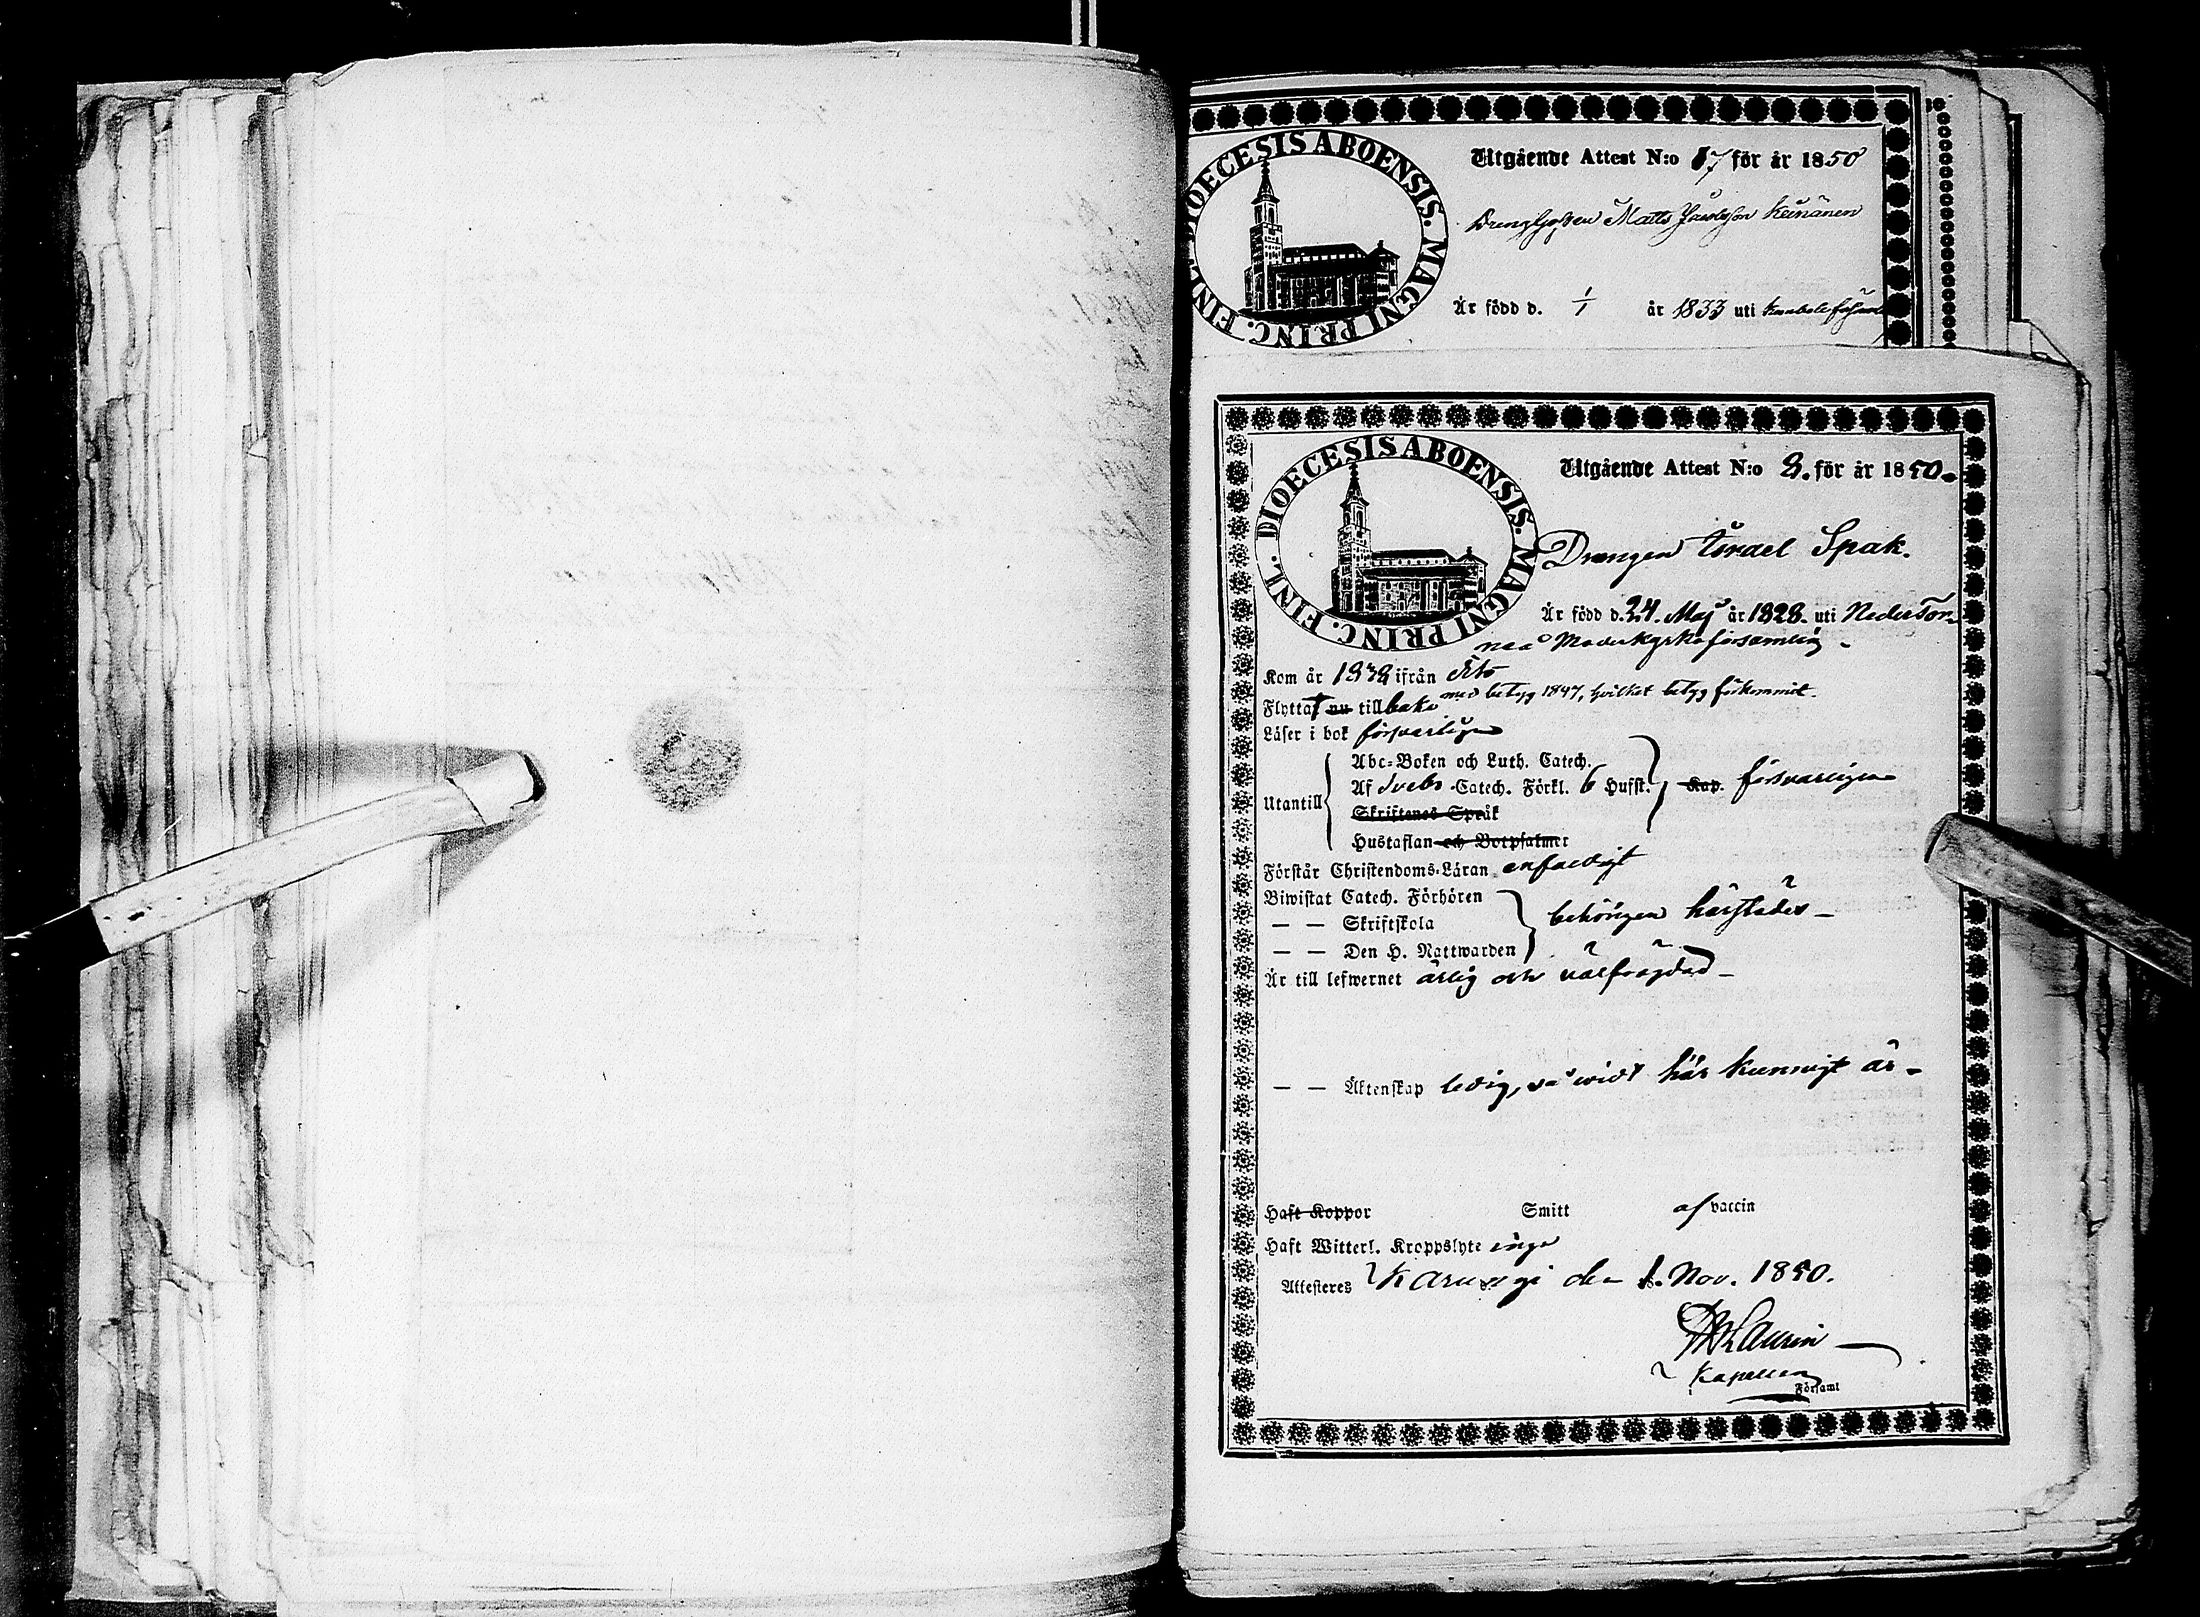 DIOECESIS ABOENSIS. MAGNI PRINC. FINL.
Utgående Attest N:o 17 för år 1850
Drengen Matts Jacobsson Keinänen
Är född d. 1/1 år 1833 uti
DIOECESIS ABOENSIS. MAGNI PRINC. FINL.
Utgående Attest N:o 8. för år 1850.
Drengen Israel Spak.
Är född d. 24. Maj år 1828. uti NederTor-
neå Moderkyrkoförsamling.
Kom år 1838 ifrån dito
Flyttat nu tillbaka med betyg 1847, hvilket betyg förkommit.
Läser i bok försvarligen
Abc-Boken och Luth. Catech.
Utantill Af Sveb. Catech. Förkl. 6 Hufst. Kap. försvarligen
Skriftenes Språk
Hustaflan och Botpsalmer
Förstår Christendoms-Läran enfaldigt
Biwistat Catech. Förhören
— — Skriftskola behörigen härstädes —
— — Den H. Nattwarden
Är till lefwernet ärlig och välfrägdad —
— — Äktenskap ledig, så widt här kunnigt är —
Haft Koppor Smitt af vaccin
Haft Witterl. Kroppslyte inga
Attesteres Karungi den 1. Nov. 1850.
Laurin
Kapellan
Församl